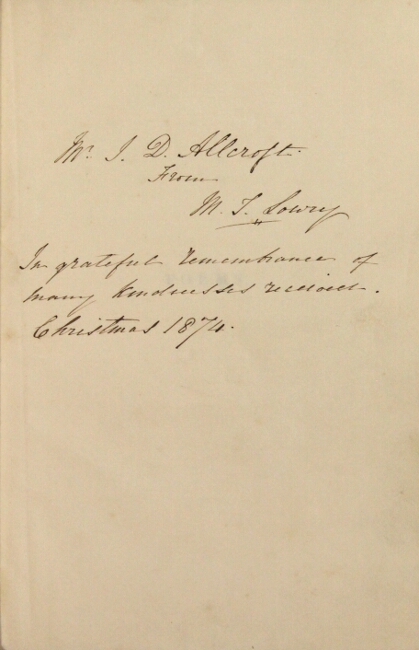 Mr. J. D. Allcroft.
From
M. T. Lowry
In grateful remembrance of
many kindnesses received.
Christmas 1874.